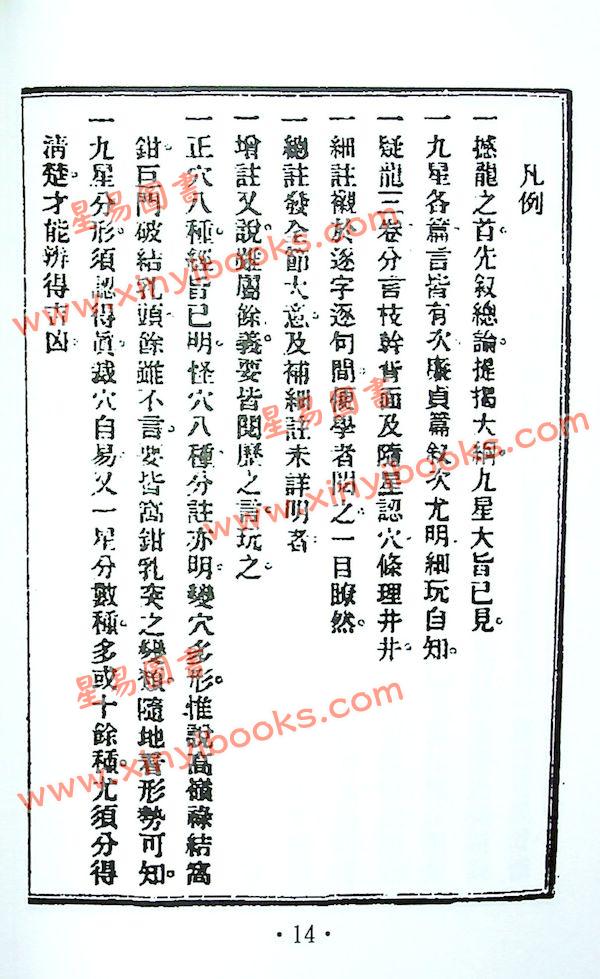 凡例
一撼龍之首先叙總論提揭大綱九星大旨已見。
一九星各篇言皆有次廉貞篇叙次尤明細玩自知。
一疑龍三卷分言枝幹背面及隨星認穴條理井井。
一細註襯於逐字逐句間便學者閱之一目瞭然。
一總註發全節大意及補細註未詳明者
一增註又說雖屬餘義要皆閱歷之言玩之
一正穴八種經旨已明怪穴八種分註亦明變穴多形惟說高嶺祿結窩
鉗巨門破結乳頭餘雖不言要皆窩鉗乳突之變類隨地看形勢可知。
一九星分形須認得眞裁穴自易又一星分數種多或十餘種尤須分得
清楚才能辨得吉凶
星易圖書
www.xinyibooks.com
星易圖書
www.xinyibooks.com
星易圖書
www.xinyibooks.com
·14·